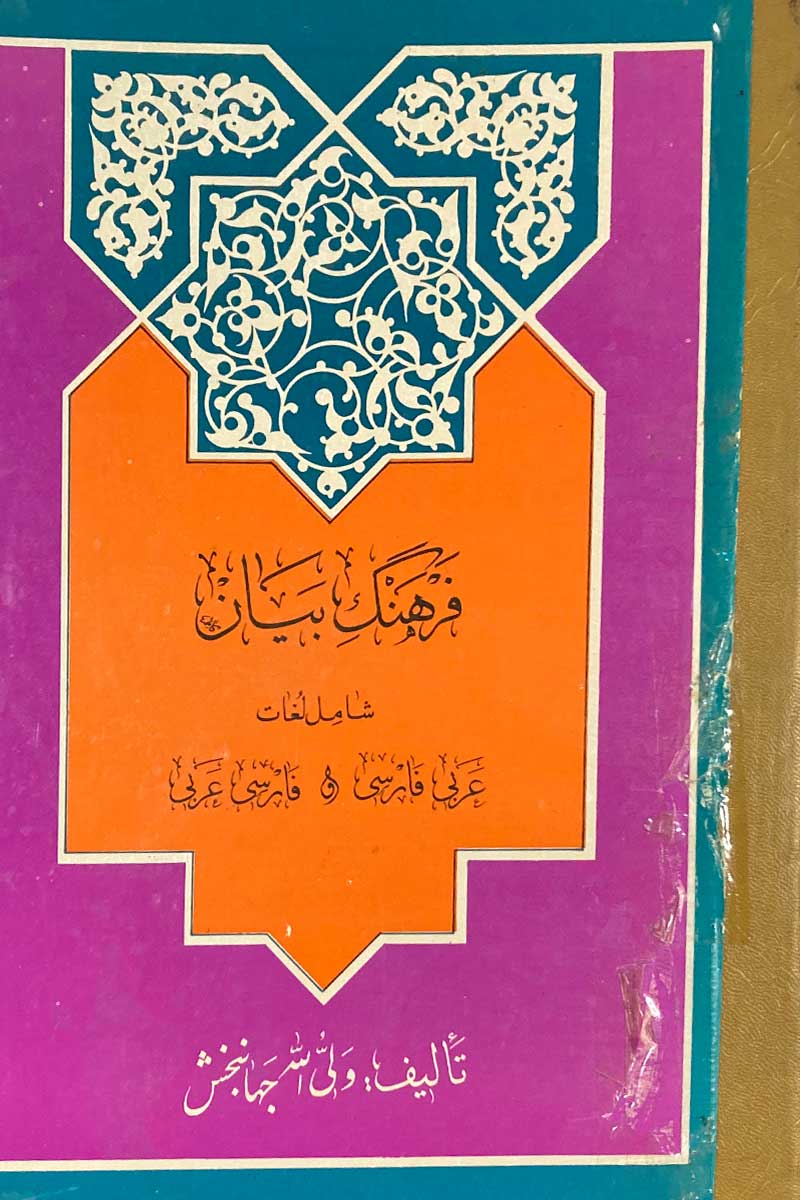 فَرهَنگِ بَیَان
شامِل لُغات
عَرَبی فَارسی و فَارسی عَرَبی
تأليف: وَلیُّ اللّٰه جَهانبخش